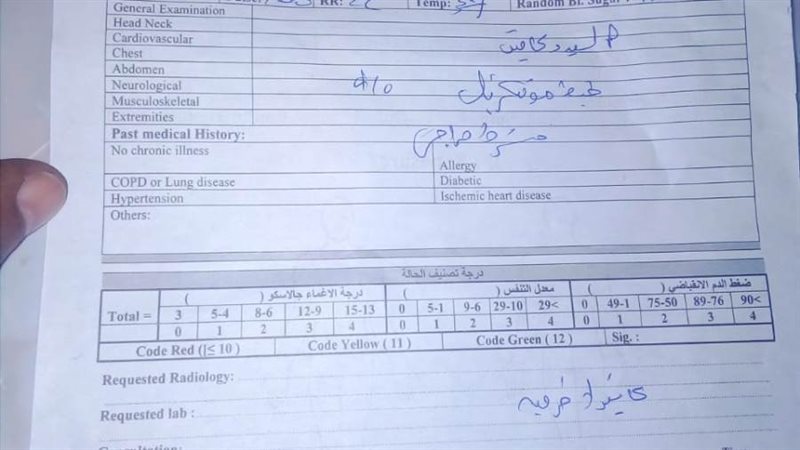 RR: 22 Temp: 37 Random Bl. Sugar
General Examination
Head Neck
Cardiovascular
Chest
Abdomen
Neurological
Musculoskeletal
Extremities
مشرط جراحي
Past medical History:
No chronic illness
Allergy
COPD or Lung disease Diabetic
Hypertension Ischemic heart disease
Others:
درجة تصنيف الحالة
ضغط الدم الانقباضي ( ) معدل التنفس ( ) درجة الاغماء جالاسكو ( )
Total = 3 5-4 8-6 12-9 15-13 0 5-1 9-6 29-10 29< 0 49-1 75-50 89-76 90<
0 1 2 3 4 0 1 2 3 4 0 1 2 3 4
Code Red (|≤ 10 ) Code Yellow ( 11 ) Code Green ( 12 ) Sig. :
Requested Radiology:
Requested lab :